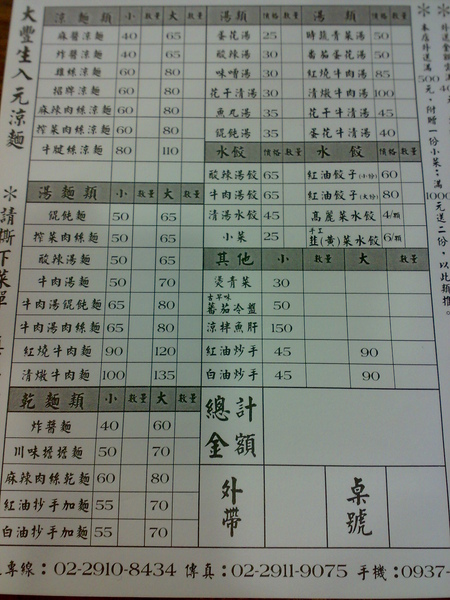 大豐生入元涼麵
涼麵類 小 數量 大 數量
麻醬涼麵 40 65
炸醬涼麵 40 65
雞絲涼麵 60 80
招牌涼麵 60 80
麻辣肉絲涼麵 60 80
榨菜肉絲涼麵 60 80
牛腱絲涼麵 80 110
湯麵類 小 數量 大 數量
餛飩麵 50 65
榨菜肉絲麵 50 65
酸辣湯麵 50 65
牛肉湯麵 50 70
牛肉湯餛飩麵 65 80
牛肉湯肉絲麵 65 80
紅燒牛肉麵 90 120
清燉牛肉麵 100 135
乾麵類 小 數量 大 數量
炸醬麵 40 60
川味擔擔麵 50 70
麻辣肉絲乾麵 60 80
紅油抄手加麵 55 70
白油抄手加麵 55 70
湯類 價格 數量 湯類 價格 數量
蛋花湯 25 時蔬青菜湯 50
酸辣湯 30 番茄蛋花湯 50
味噌湯 30 紅燒牛肉湯 85
花干清湯 30 清燉牛肉湯 100
魚丸湯 35 花干牛清湯 45
餛飩湯 35 蛋花牛清湯 40
水餃 價格 數量 水餃 價格 數量
酸辣湯餃 65 紅油餃子(小份) 60
牛肉湯餃 65 紅油餃子(大份) 80
清湯水餃 45 高麗菜水餃 4/顆
小菜 25 手工韭(黃)菜水餃 6/顆
其他 小 數量 大 數量
燙青菜 30
古早味番茄冷盤 50
涼拌魚肝 150
紅油炒手 45 90
白油炒手 45 90
總計金額
外帶 桌號
*本店外送滿500元,附贈一份小菜:滿1000元送二份,以此類推。
*請撕下菜單
專線:02-2910-8434 傳真:02-2911-9075 手機:0937-